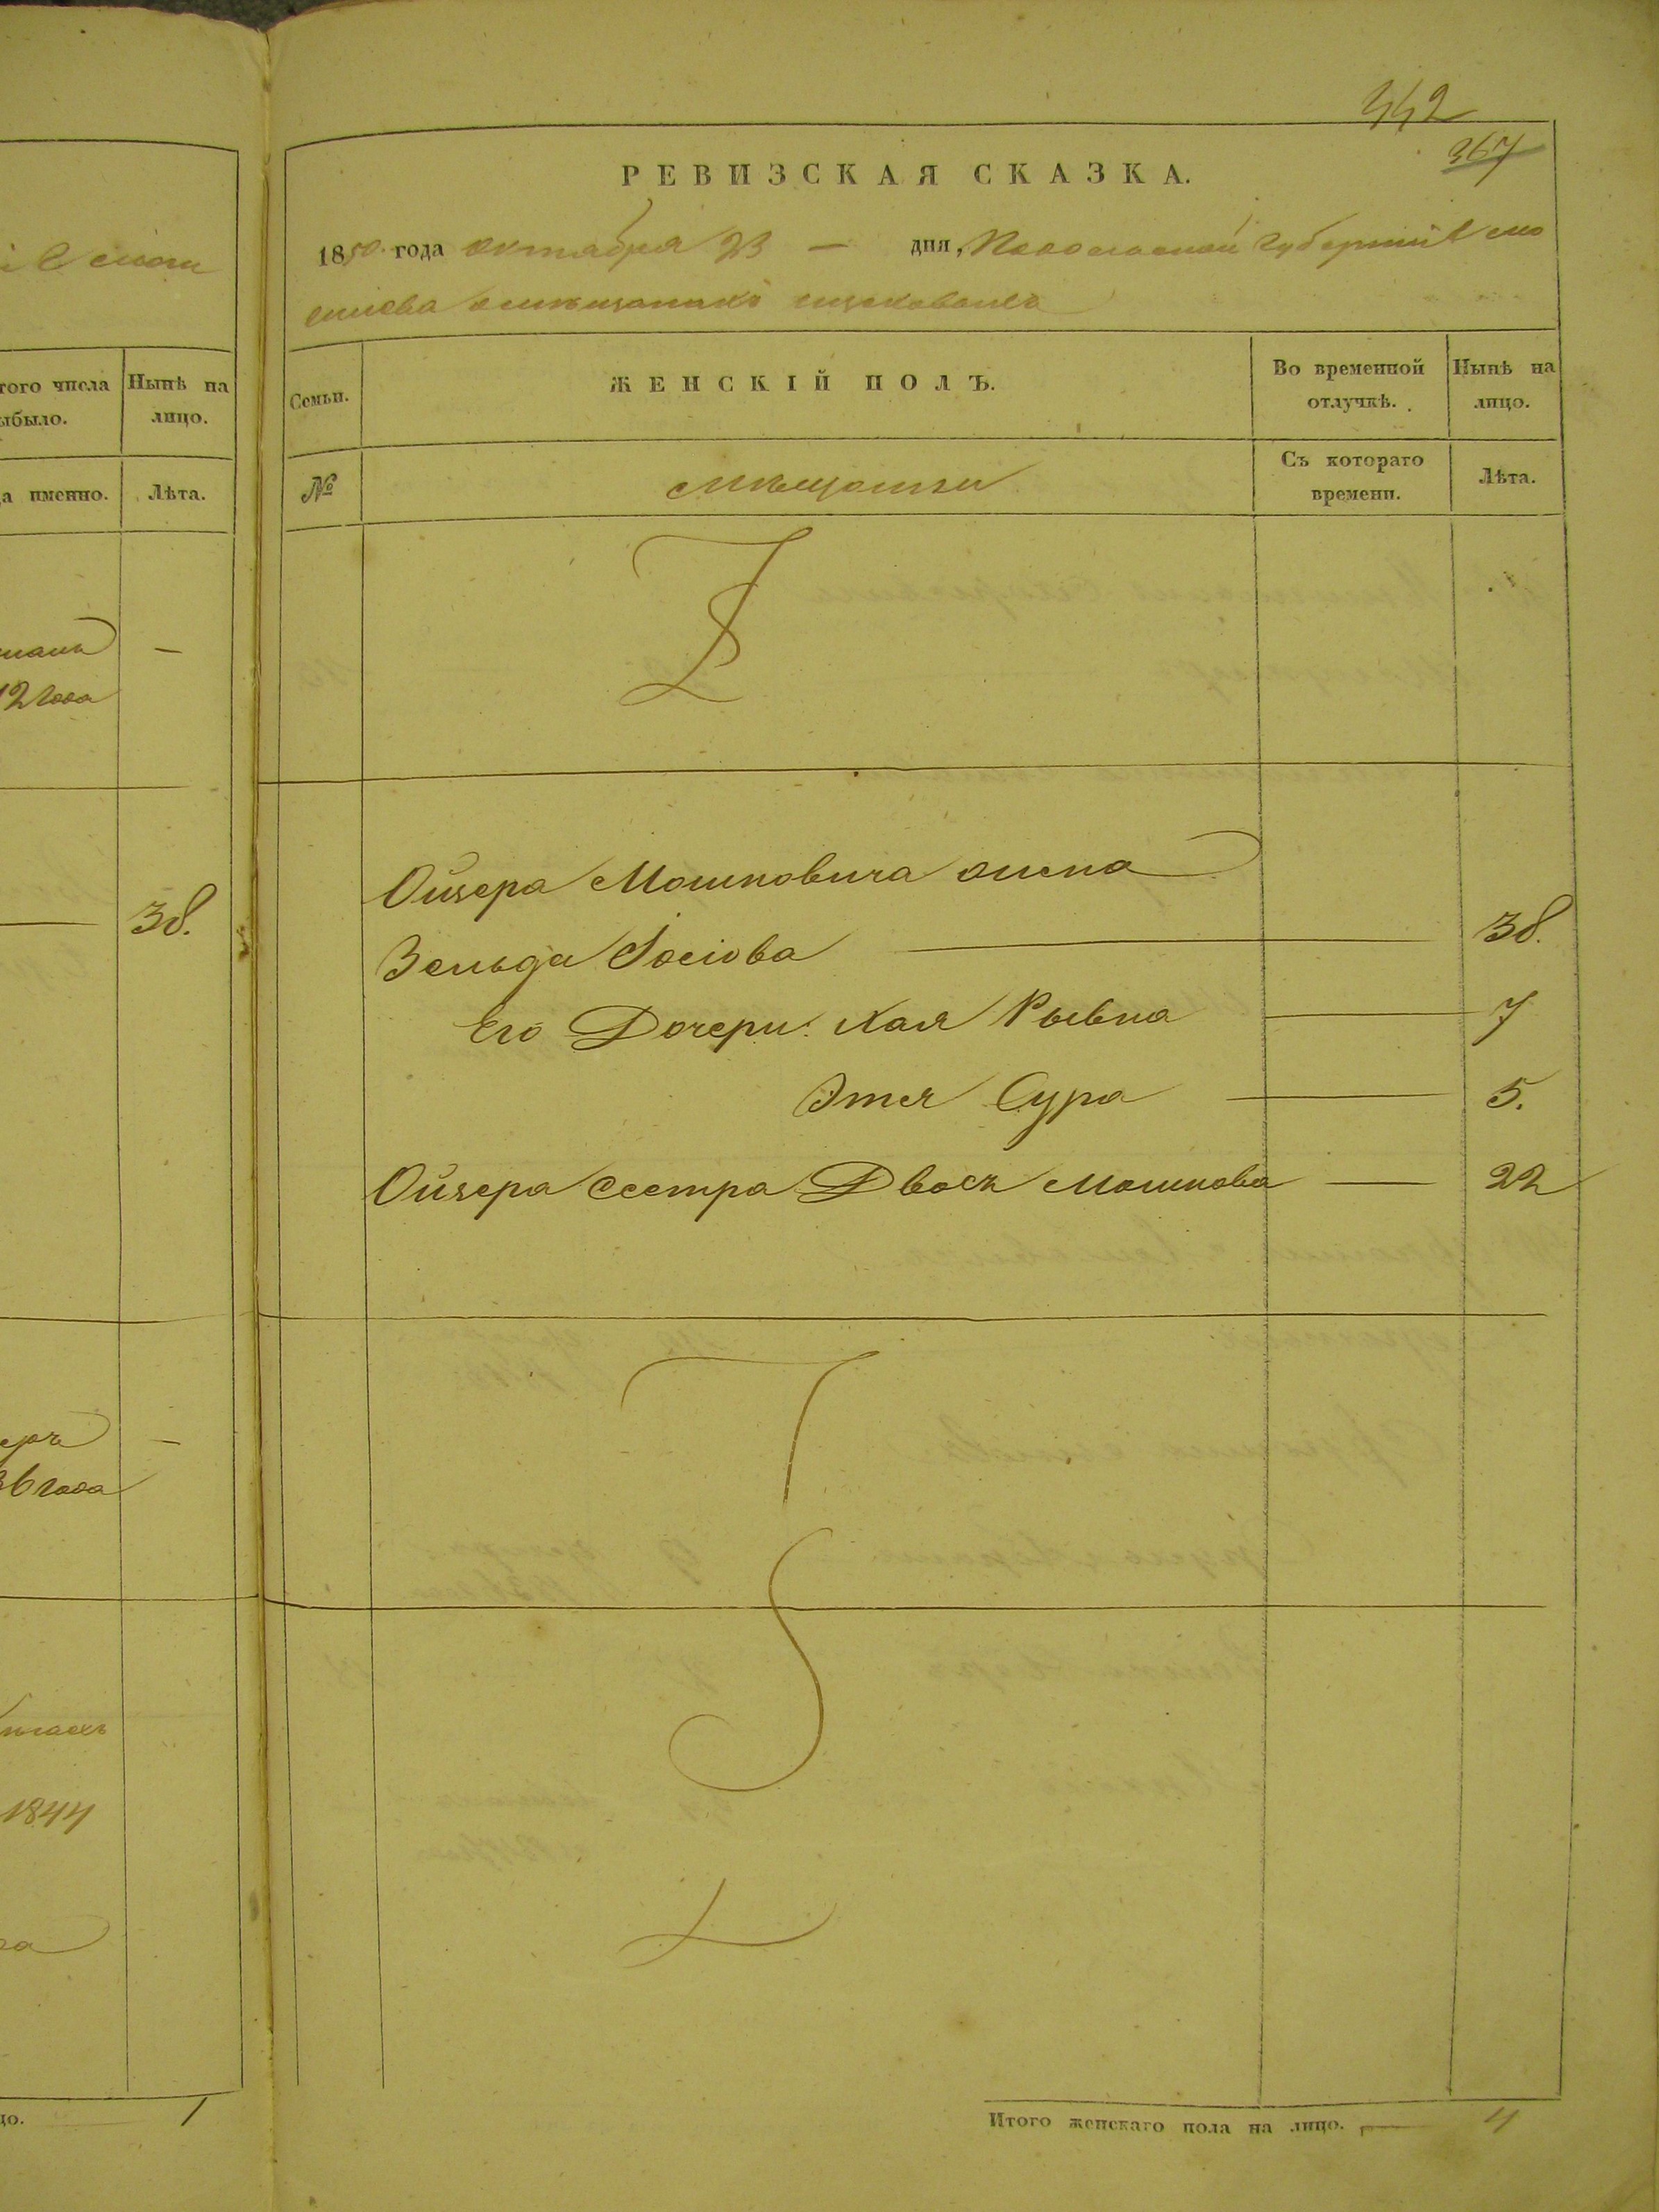 442
367
РЕВИЗСКАЯ СКАЗКА.
1850 года октября 23 — дня, Подольской губерніи
ЖЕНСКІЙ ПОЛЪ.
Семьи.
Во временной отлучкѣ.
Нынѣ на лицо.
№
мѣщанки
Съ котораго времени.
Лѣта.
Ойзера Мошковича жена
Зельда Іосіова — 38.
Его Дочери: Хая Рывка — 7
Этея Сура — 5.
Ойзера сестра Двося Мошкова — 22
Итого женскаго пола на лицо. — 4
того числа
ыбыло.
Нынѣ на
лицо.
да именно.
Лѣта.
—
12 года
— 38.
—
36 года
1844
цо. — 1